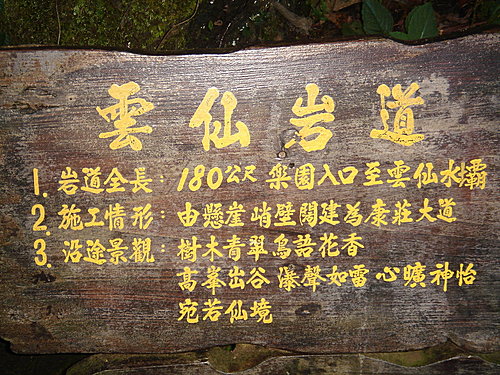 雲仙岩道
1. 岩道全長：180公尺 樂園入口至雲仙水壩
2. 施工情形：由懸崖峭壁闢建為康莊大道
3. 沿途景觀：樹木青翠鳥語花香
高峯出谷 瀑聲如雷 心曠神怡
宛若仙境